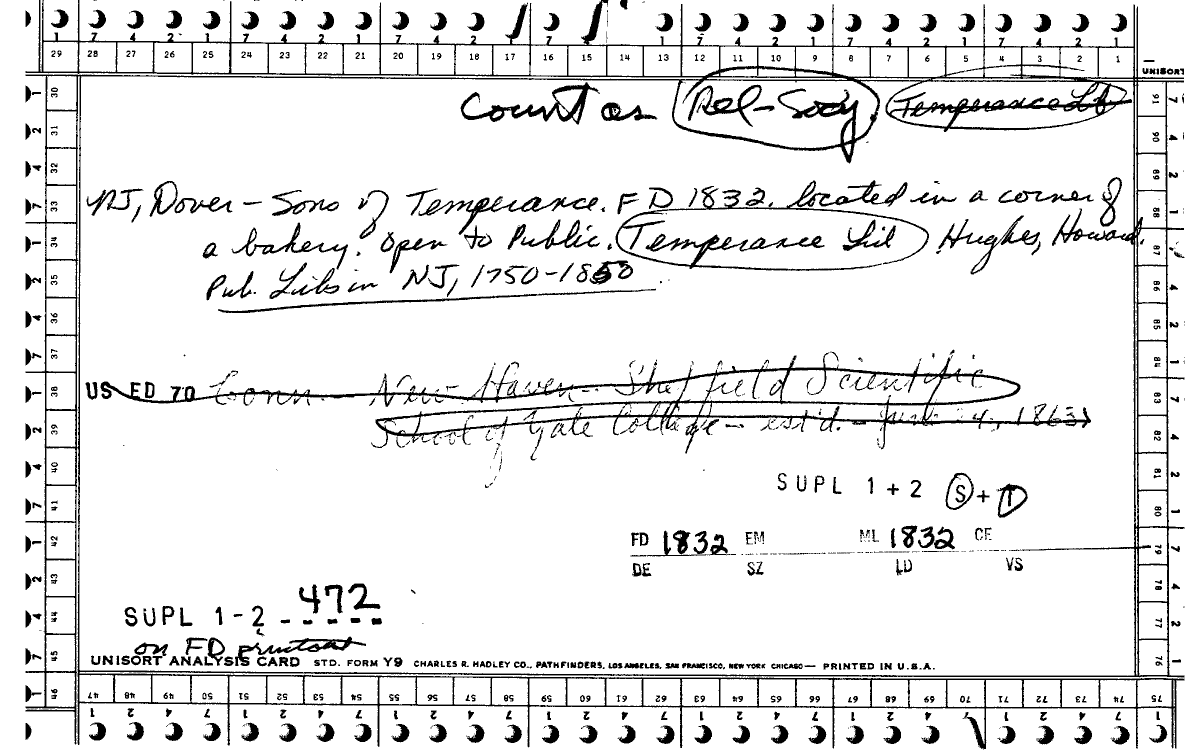 1 7 4 2 1 7 4 2 1 7 4 2 1 7 4 2 1 7 4 2 1 7 4 2 1
29 28 27 26 25 24 23 22 21 20 19 18 17 16 15 14 13 12 11 10 9 8 7 6 5 4 3 2 1
UNISORT
Count as Rel-Socy. Temperance Lib
NJ, Dover - Sons of Temperance. FD 1832. located in a corner of
a bakery. Open to Public. Temperance Lib Hughes, Howard.
Pub. Libs in NJ, 1750-1850
US ED 70 Conn. - New Haven - Sheffield Scientific
School of Yale College - est'd. - 24, 1863)
SUPL 1 + 2 S + T
FD 1832 EM ML 1832 CE
DE SZ LD VS
472
SUPL 1 - 2 - - - - -
on FD printout
UNISORT ANALYSIS CARD STD. FORM Y9 CHARLES R. HADLEY CO., PATHFINDERS, LOS ANGELES, SAN FRANCISCO, NEW YORK CHICAGO — PRINTED IN U.S.A.
47 48 49 50 51 52 53 54 55 56 57 58 59 60 61 62 63 64 65 66 67 68 69 70 71 72 73 74 75